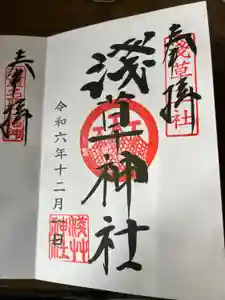 奉拝
淺草社
淺草神社
令和六年十二月一日
淺草神社
奉拝